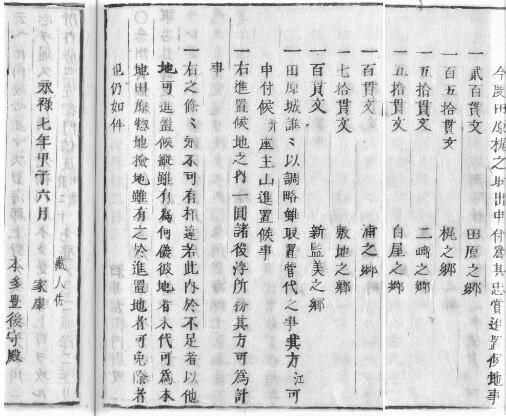 今度田原梶之時出申付為其忠賞進置候地事
一貳百貫文　田原之鄉
一百五拾貫文　梶之鄉
一五拾貫文　二崎之鄉
一五拾貫文　白屋之鄉
一百貫文　浦之鄉
一七拾貫文　敷地之鄉
一百貫文　新監美之鄉
一田原城誰々以調略雖取置當代之事其方江可
申付候并座主山進置候事
一右進置候地之內一圓諸役浮所務其方可為計
事
一右之條々永不可有相違若此內於不足者以他
地可進置候縱雖有為何儀彼地者末代可為本
地田原惣地檢地雖有之於進置地者可免除者
也仍如件
永祿七年甲子六月
藏人佐
家康
本多豐後守殿